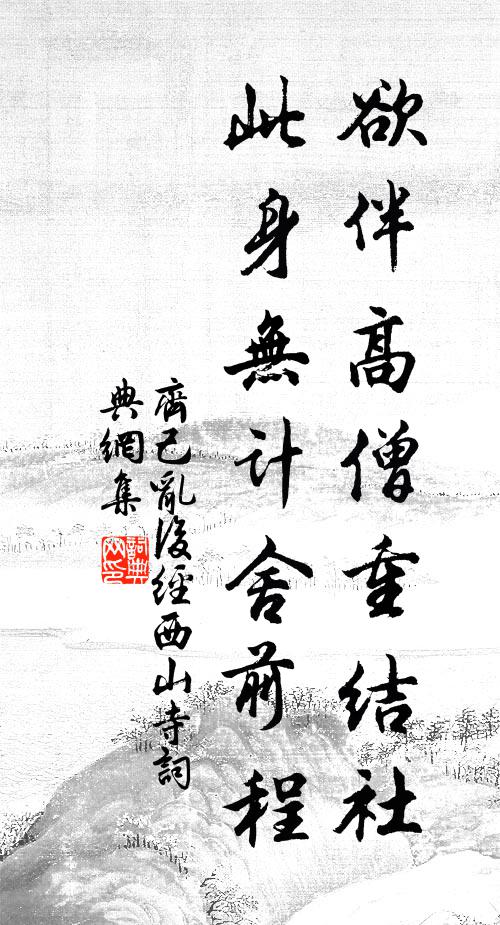 欲伴高僧重結社
此身無計舍前程
齊己亂後經西山寺詞
典網集
詞典網印